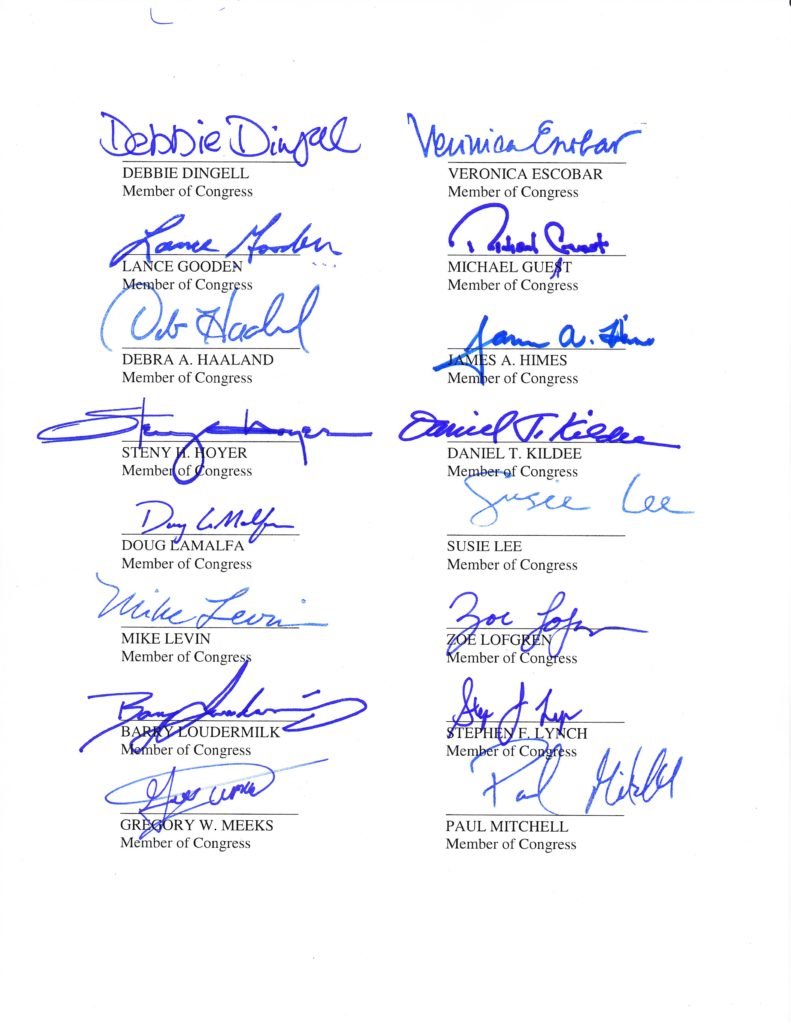 Debbie Dingell
DEBBIE DINGELL
Member of Congress
Veronica Escobar
VERONICA ESCOBAR
Member of Congress
Lance Gooden
LANCE GOODEN
Member of Congress
Michael Guest
MICHAEL GUEST
Member of Congress
Deb Haaland
DEBRA A. HAALAND
Member of Congress
James A. Himes
JAMES A. HIMES
Member of Congress
Steny Hoyer
STENY H. HOYER
Member of Congress
Daniel T. Kildee
DANIEL T. KILDEE
Member of Congress
Doug LaMalfa
DOUG LAMALFA
Member of Congress
Susie Lee
SUSIE LEE
Member of Congress
Mike Levin
MIKE LEVIN
Member of Congress
Zoe Lofgren
ZOE LOFGREN
Member of Congress
Barry Loudermilk
BARRY LOUDERMILK
Member of Congress
STEPHEN F. LYNCH
Member of Congress
GREGORY W. MEEKS
Member of Congress
Paul Mitchell
PAUL MITCHELL
Member of Congress